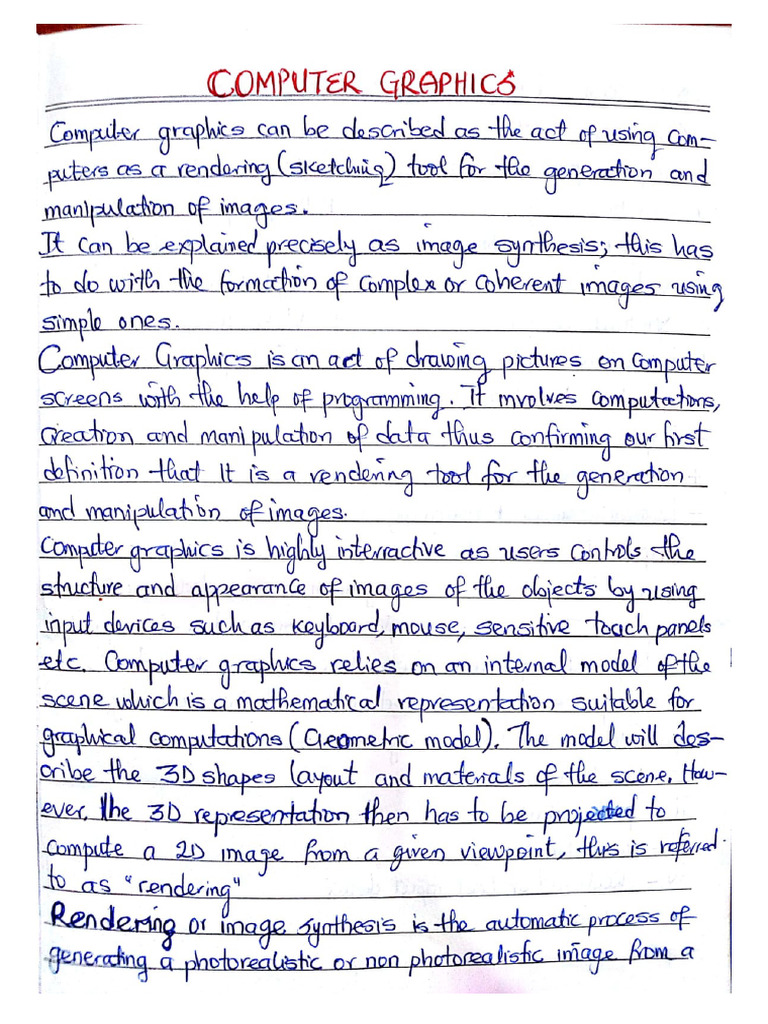 COMPUTER GRAPHICS
Computer graphics can be described as the act of using com-
puters as a rendering (sketching) tool for the generation and
manipulation of images.
It can be explained precisely as image synthesis; this has
to do with the formation of complex or coherent images using
simple ones.
Computer Graphics is an act of drawing pictures on computer
screens with the help of programming. It involves computations,
creation and manipulation of data thus confirming our first
definition that it is a rendering tool for the generation
and manipulation of images.
Computer graphics is highly interractive as users controls the
structure and appearance of images of the objects by using
input devices such as keyboard, mouse, sensitive touch panels
etc. Computer graphics relies on an internal model of the
scene which is a mathematical representation suitable for
graphical computations (Geometric model). The model will des-
cribe the 3D shapes layout and materials of the scene. How-
ever, the 3D representation then has to be projected to
compute a 2D image from a given viewpoint, this is referred
to as "rendering"
Rendering or image synthesis is the automatic process of
generating a photorealistic or non photorealistic image from a